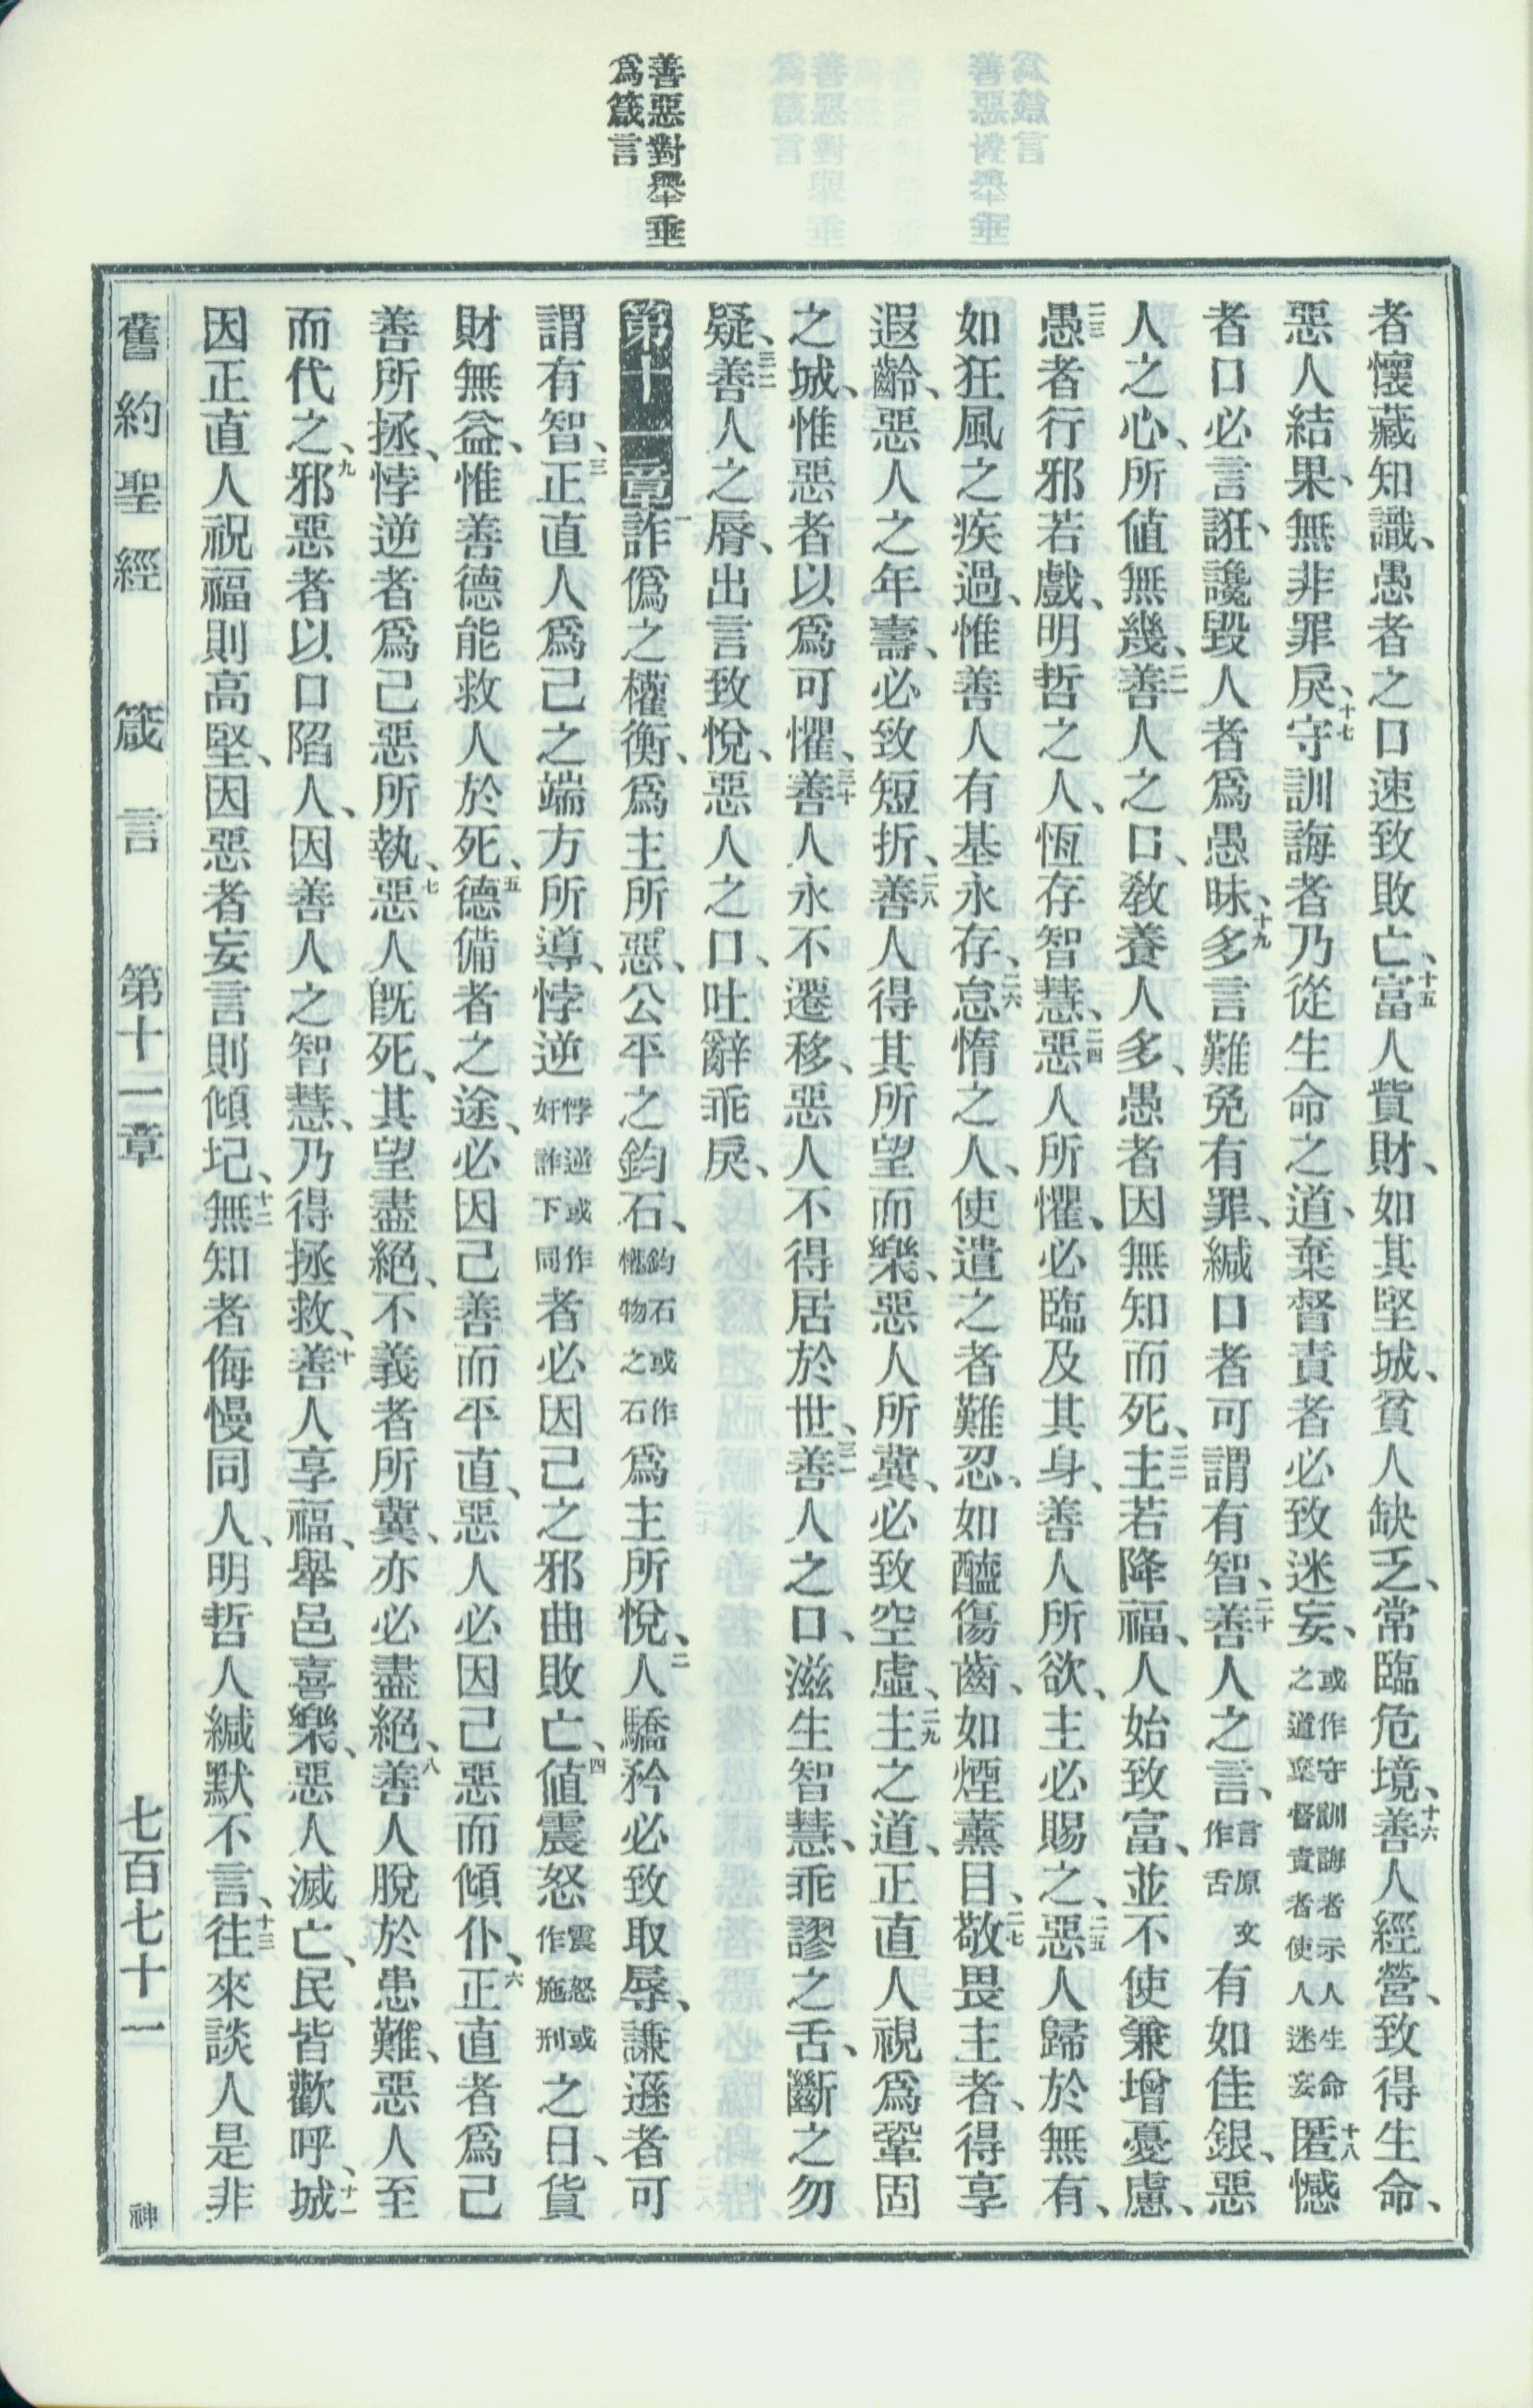 善惡對舉垂
爲箴言
者懷藏知識、愚者之口速致敗亡、十五富人貲財、如其堅城、貧人缺乏、常臨危境、十六善人經營、致得生命、
惡人結果、無非罪戾、十七守訓誨者乃從生命之道、棄督責者必致迷妄、或作守訓誨者示人生命之道棄督責者使人迷妄十八匿憾
者口必言誑、讒毀人者爲愚昧、十九多言難免有罪、緘口者可謂有智、二十善人之言、言原文作舌有如佳銀、惡
人之心、所値無幾、二一善人之口、敎養人多、愚者因無知而死、二二主若降福、人始致富、並不使兼增憂慮、
二三愚者行邪若戲、明哲之人、恆存智慧、二四惡人所懼、必臨及其身、善人所欲、主必賜之、二五惡人歸於無有、
如狂風之疾過、惟善人有基永存、二六怠惰之人、使遣之者難忍、如醯傷齒、如煙薰目、二七敬畏主者、得享
遐齡、惡人之年壽、必致短折、二八善人得其所望而樂、惡人所冀、必致空虛、二九主之道、正直人視爲鞏固
之城、惟惡者以爲可懼、三十善人永不遷移、惡人不得居於世、三一善人之口、滋生智慧、乖謬之舌、斷之勿
疑、三二善人之脣、出言致悅、惡人之口、吐辭乖戾、
第十一章一詐僞之權衡、爲主所惡、公平之鈞石、鈞石或作權物之石爲主所悅、二人驕矜必致取辱、謙遜者可
謂有智、三正直人爲己之端方所導、悖逆悖逆或作奸詐下同者必因己之邪曲敗亡、四値震怒震怒或作施刑之日、貨
財無益、惟善德能救人於死、五德備者之途、必因己善而平直、惡人必因己惡而傾仆、六正直者爲己
善所拯、悖逆者爲己惡所執、七惡人旣死、其望盡絕、不義者所冀、亦必盡絕、八善人脫於患難、惡人至
而代之、九邪惡者以口陷人、因善人之智慧、乃得拯救、十善人享福、舉邑喜樂、惡人滅亡、民皆歡呼、十一城
因正直人祝福則高堅、因惡者妄言則傾圮、十二無知者侮慢同人、明哲人緘默不言、十三往來談人是非
舊約聖經　箴言　第十一章　七百七十一　神